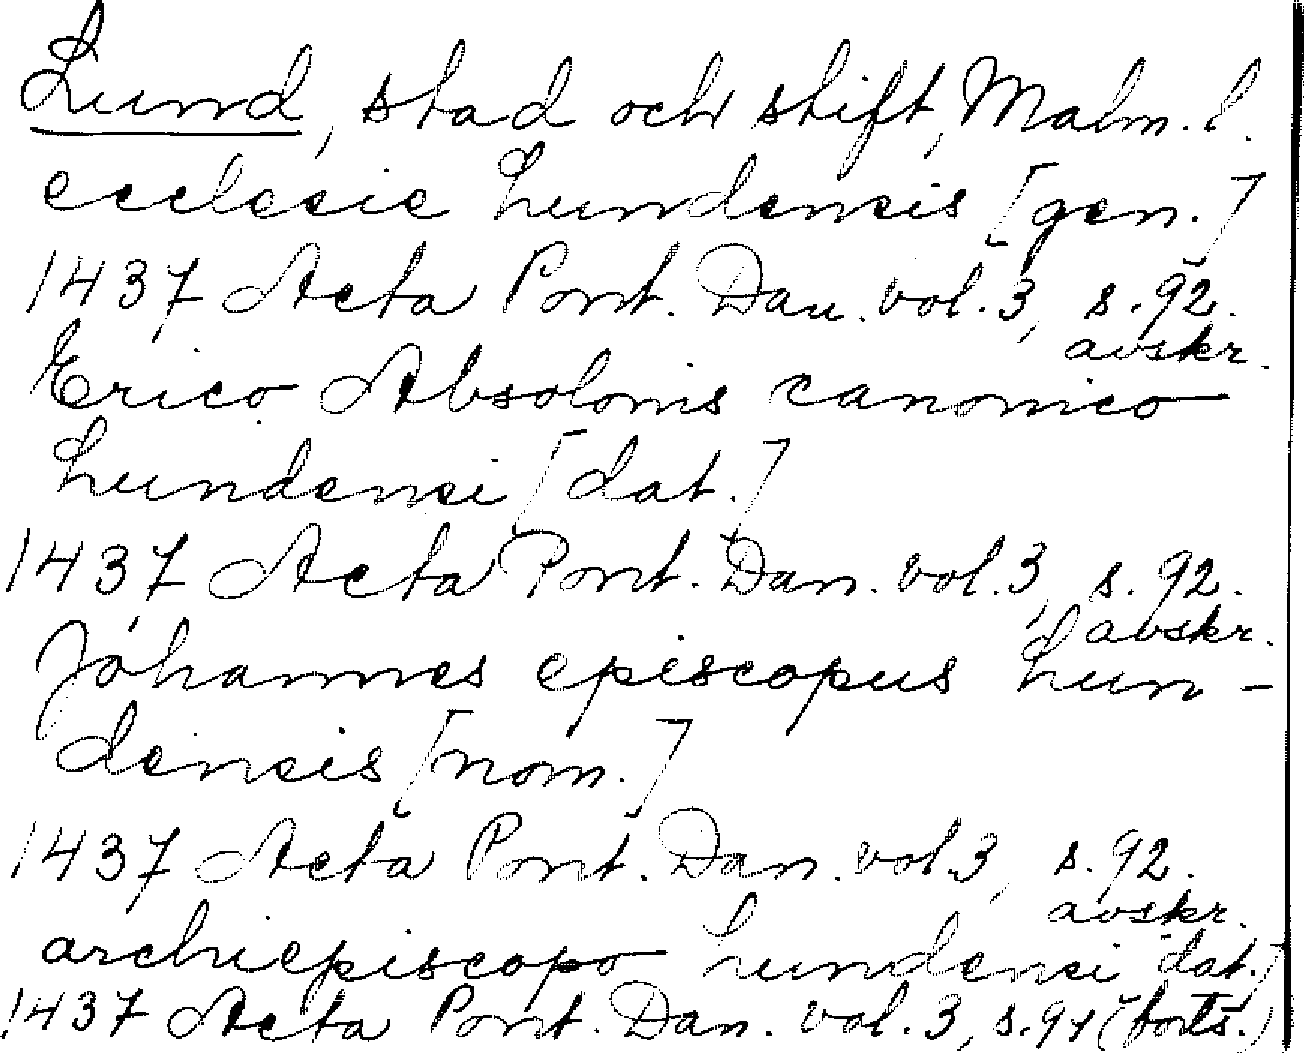 Lund, stad och stift, Malm. l.
ecclesie Lundensis [gen.]
1437 Acta Pont. Dan. vol. 3, s. 92.
avskr.
Erico Absolonis canonico
Lundensi [dat.]
1437 Acta Pont. Dan. vol. 3, s. 92.
avskr.
Johannes episcopus Lun-
densis [nom.]
1437 Acta Pont. Dan. vol. 3, s. 92.
avskr.
archiepiscopo Lundensi dat.]
1437 Acta Pont. Dan. vol. 3, s. 91 (forts.)